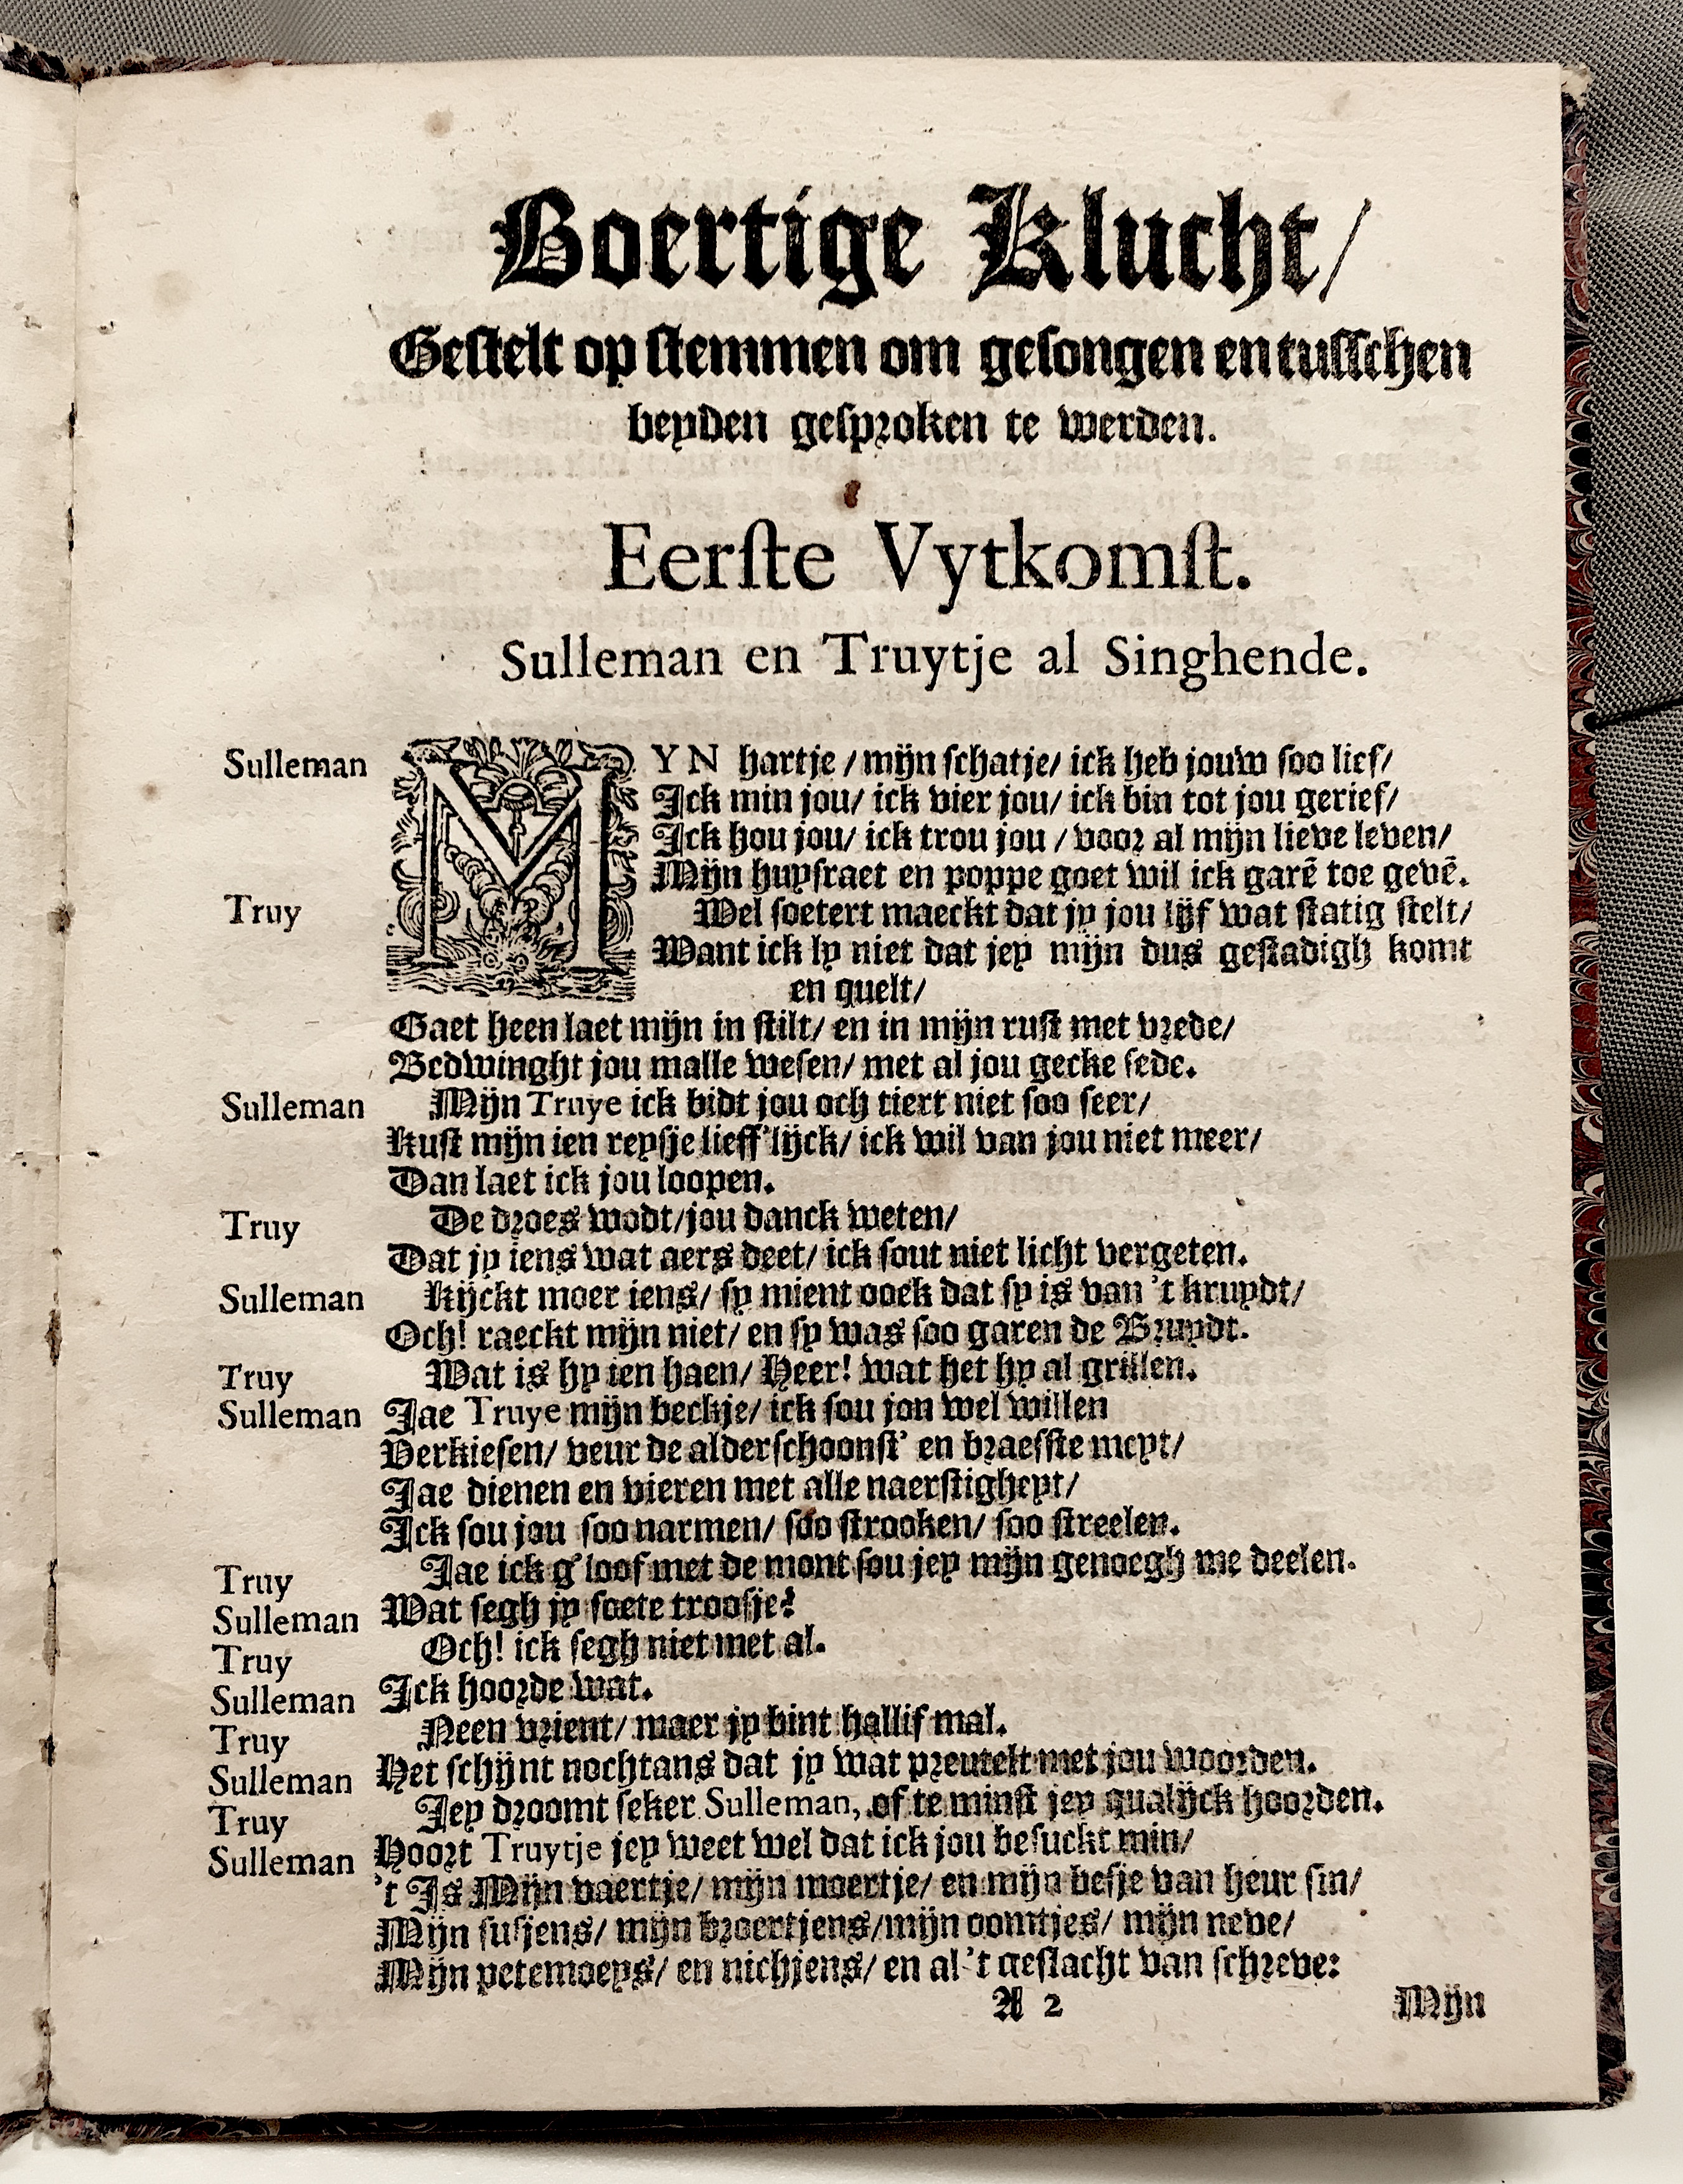 Boertige Klucht/
Gestelt op stemmen om gesongen en tusschen
beyden gesproken te werden.
Eerste Vytkomst.
Sulleman en Truytje al Singhende.
Sulleman MYN hartje / mijn schatje/ ick heb jouw soo lief/
Ick min jou/ ick vier jou/ ick bin tot jou gerief/
Ick hou jou/ ick trou jou / voor al mijn lieve leven/
Mijn huysraet en poppe goet wil ick garē toe gevē.
Truy Wel soetert maeckt dat jy jou lijf wat statig stelt/
Want ick ly niet dat jey mijn dus gestadigh komt
en quelt/
Gaet heen laet mijn in stilt/ en in mijn rust met vrede/
Bedwinght jou malle wesen/ met al jou gecke sede.
Sulleman Mijn Truye ick bidt jou och tiert niet soo seer/
Kust mijn ien reysje lieff'lijck/ ick wil van jou niet meer/
Dan laet ick jou loopen.
Truy De droes wodt/jou danck weten/
Dat jy iens wat aers deet/ ick sout niet licht vergeten.
Sulleman Kijckt moer iens/ sy mient ooek dat sy is van 't kruydt/
Och! raeckt mijn niet/ en sy was soo garen de Bruydt.
Truy Wat is hy ien haen/ Heer! wat het hy al grillen.
Sulleman Jae Truye mijn beckje/ ick sou jon wel willen
Verkiesen/ veur de alderschoonst' en braefste meyt/
Jae dienen en vieren met alle naerstigheyt/
Ick sou jou soo narmen/ soo strooken/ soo streelen.
Truy Jae ick g'loof met de mont sou jey mijn genoegh me deelen.
Sulleman Wat segh jy soete troosje?
Truy Och! ick segh niet met al.
Sulleman Ick hoorde wat.
Truy Neen vrient/ maer jy bint hallif mal.
Sulleman Het schijnt nochtans dat jy wat preutelt met jou woorden.
Truy Jey droomt seker Sulleman, of te minst jey qualijck hoorden.
Sulleman Hoort Truytje jey weet wel dat ick jou besuckt min/
't Is Mijn vaertje/ mijn moertje/ en mijn besje van heur sin/
Mijn susjens/ mijn broertjens/mijn oomtjes/ mijn neve/
Mijn petemoeys/ en nichjens/ en al 't geslacht van schreve:
A 2 Mijn